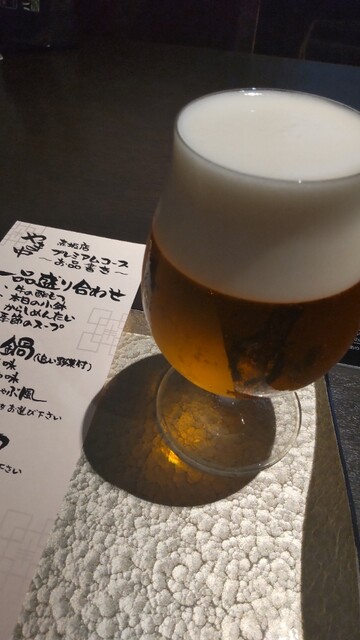 やまや
赤坂店
プレミアムコース
〜お品書き〜
一品盛り合わせ
牛の酢もつ
本日の小鉢
からしめんたい
季節のスープ
鍋(追い野菜付)
味
味
風
お選び下さい
ださい